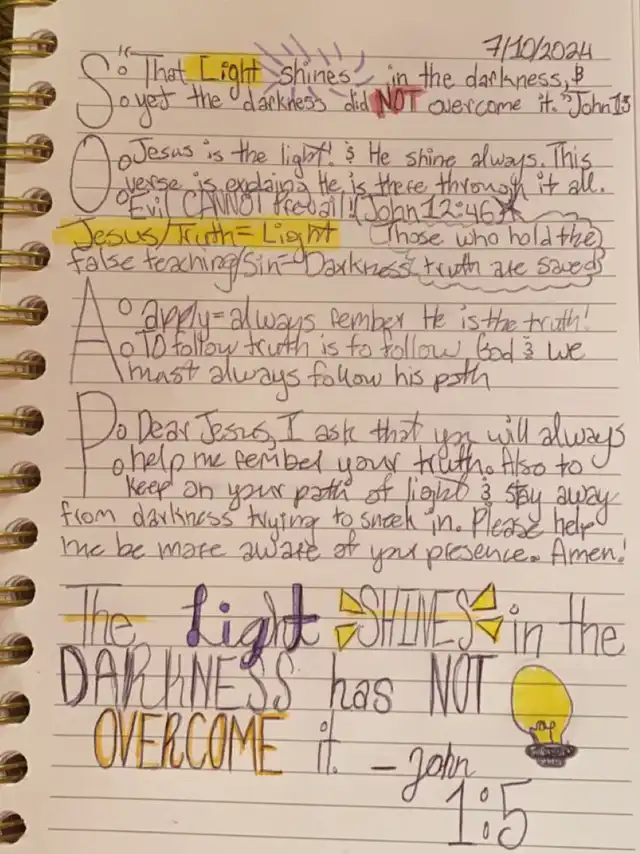 7/10/2024
S
o "That Light shines in the darkness, &
o yet the darkness did NOT overcome it." John 1:5
O
o Jesus is the light! & He shine always. This
verse is explaing He is there through it all.
o Evil CANNOT Prevail! (John 12:46)
Jesus/Truth = Light (Those who hold the
false teaching/Sin = Darkness truth are saved)
A
o apply = always rember He is the truth!
o To follow truth is to follow God & we
must always follow his path
P
o Dear Jesus, I ask that you will always
o help me rember your truth. Also to
keep on your path of light & stay away
from darkness trying to sneek in. Please help
me be more aware of your presence. Amen!
The Light SHINES in the
DARKNESS has NOT
OVERCOME it. - John
1:5